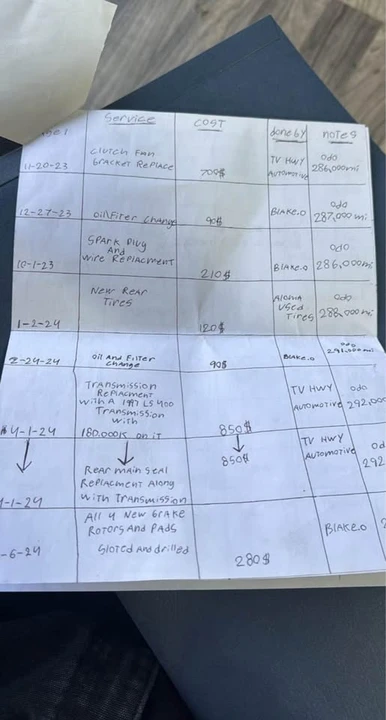 Service COST done by notes
11-20-23 Clutch Fan Bracket Replace 700$ TV HWY Automotive Odo 286,000mi
12-27-23 Oil/Filter Change 90$ Blake.O Odo 287,000mi
10-1-23 Spark Plug And Wire Replacment 210$ Blake.O Odo 286,000mi
1-2-24 New Rear Tires 120$ Aloma Used Tires Odo 288,000mi
2-24-24 Oil And Filter Change 90$ Blake.O Odo 291,000mi
4-1-24 Transmission Replacment With A 1997 LS400 Transmission With 180.000K on it 850$ TV HWY Automotive Odo 292,000
-1-24 Rear main Seal Replacment Along With Transmission 850$ TV HWY Automotive Od 292
-6-24 All 4 New Brake Rotors And Pads Sloted and drilled 280$ Blake.O